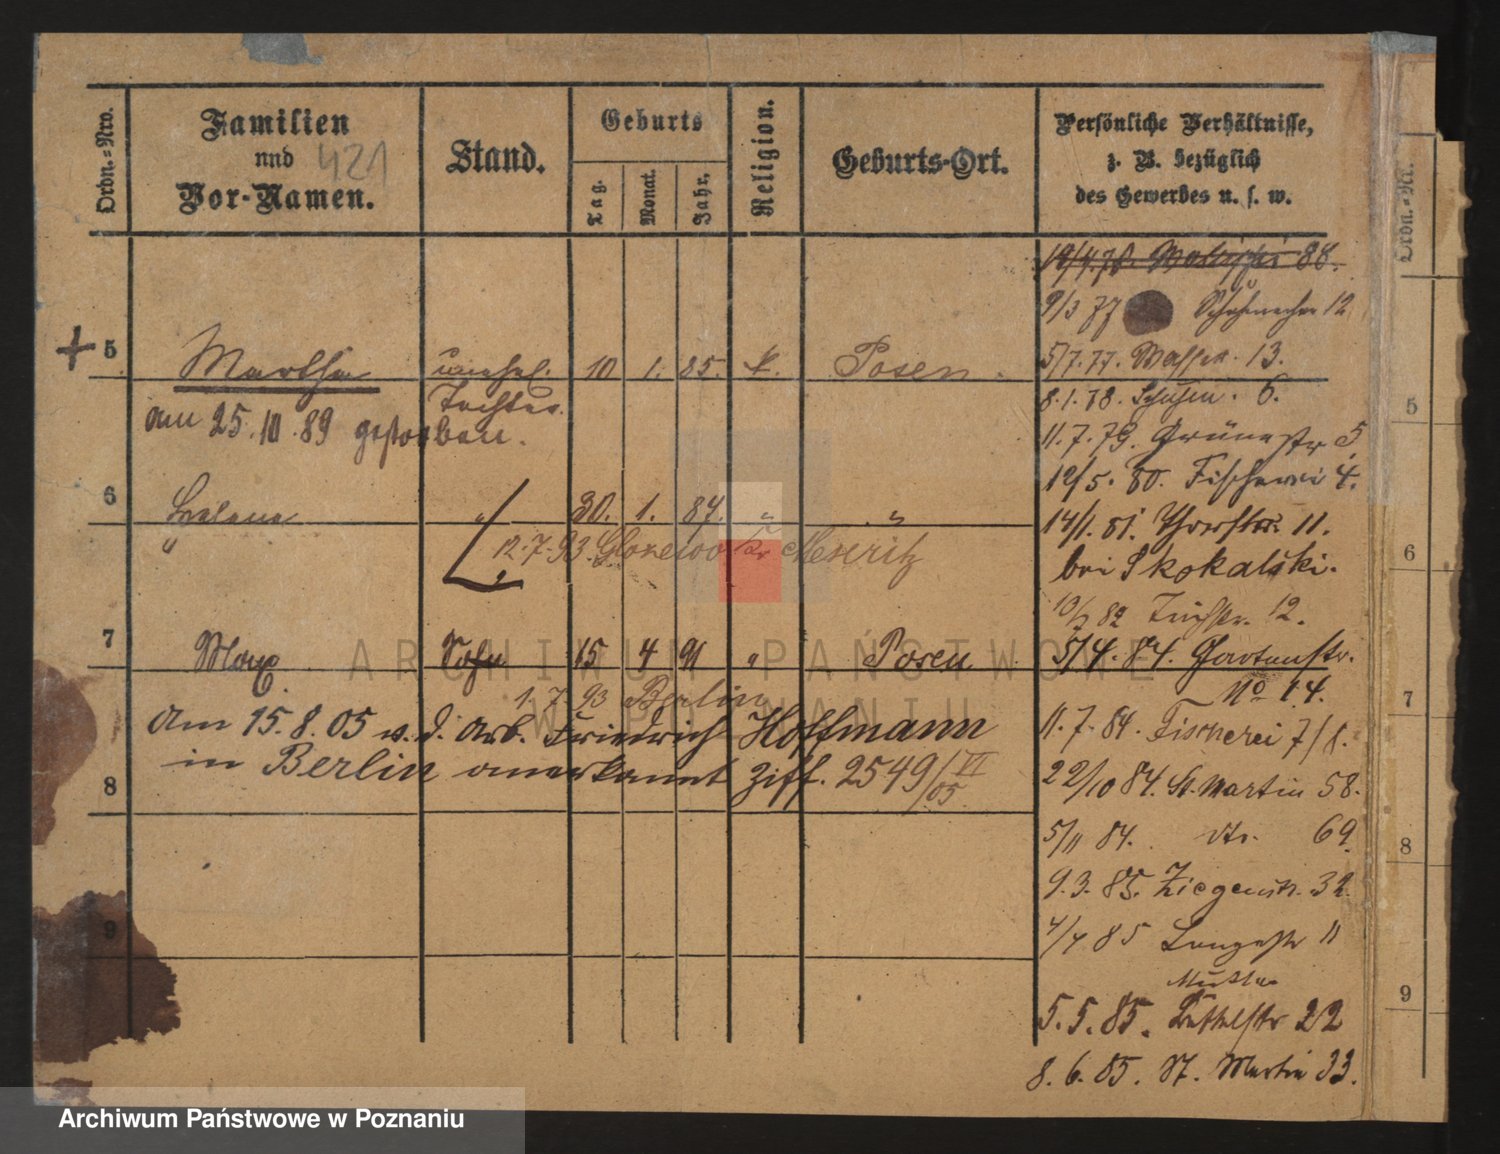 Ordn.=Nro.
Familien
und 421
Vor-Namen.
Stand.
Geburts
Tag.
Monat.
Jahr.
Religion.
Geburts-Ort.
Persönliche Verhältnisse,
z. B. bezüglich
des Gewerbes u. s. w.
Ordn.=Nr.
88.
9/3 77 12
5/7. 77. 13.
8. 1. 78. 6.
11. 7. 79. Grünestr 5
12/5. 80. Fischerei 4.
14/1. 81. 11.
bei Skokalski.
82 12.
5/4. 84. Gartenstr.
No 14.
11. 7. 84. Fischerei 7/8.
22/10 84. St. Martin 58.
5/11 84. dto. 69.
9. 3. 85. Ziegenstr. 32.
4/4 85 Langestr 11
Mutter
5. 5. 85. 22
8. 6. 85. St. Martin 33.
+ 5 Martha unehel. 10 1. 85. k. Posen.
Tochter.
am 25. 10. 89 gestorben.
6 Helene " 30. 1. 87. " "
"
12. 7. 93. Kr Meseritz
7 Max Sohn 15 4 91 " Posen
1. 7. 93 Berlin
Am 15. 8. 05 v. d. Arb. Friedrich Hoffmann
in Berlin anerkannt Ziff. 2549/VI
05
8
9
5
6
7
8
9
ARCHIWUM PAŃSTWOWE
W POZNANIU
Archiwum Państwowe w Poznaniu